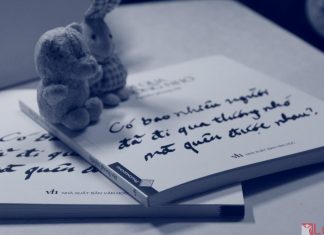 Có bao nhiêu người
đã đi qua thương nhớ
mà quên được nhau?
NHÀ XUẤT BẢN VĂN HỌC
Có bao
đã đi q
mà quên đ
NHÀ XUẤT BẢN VĂN HỌC